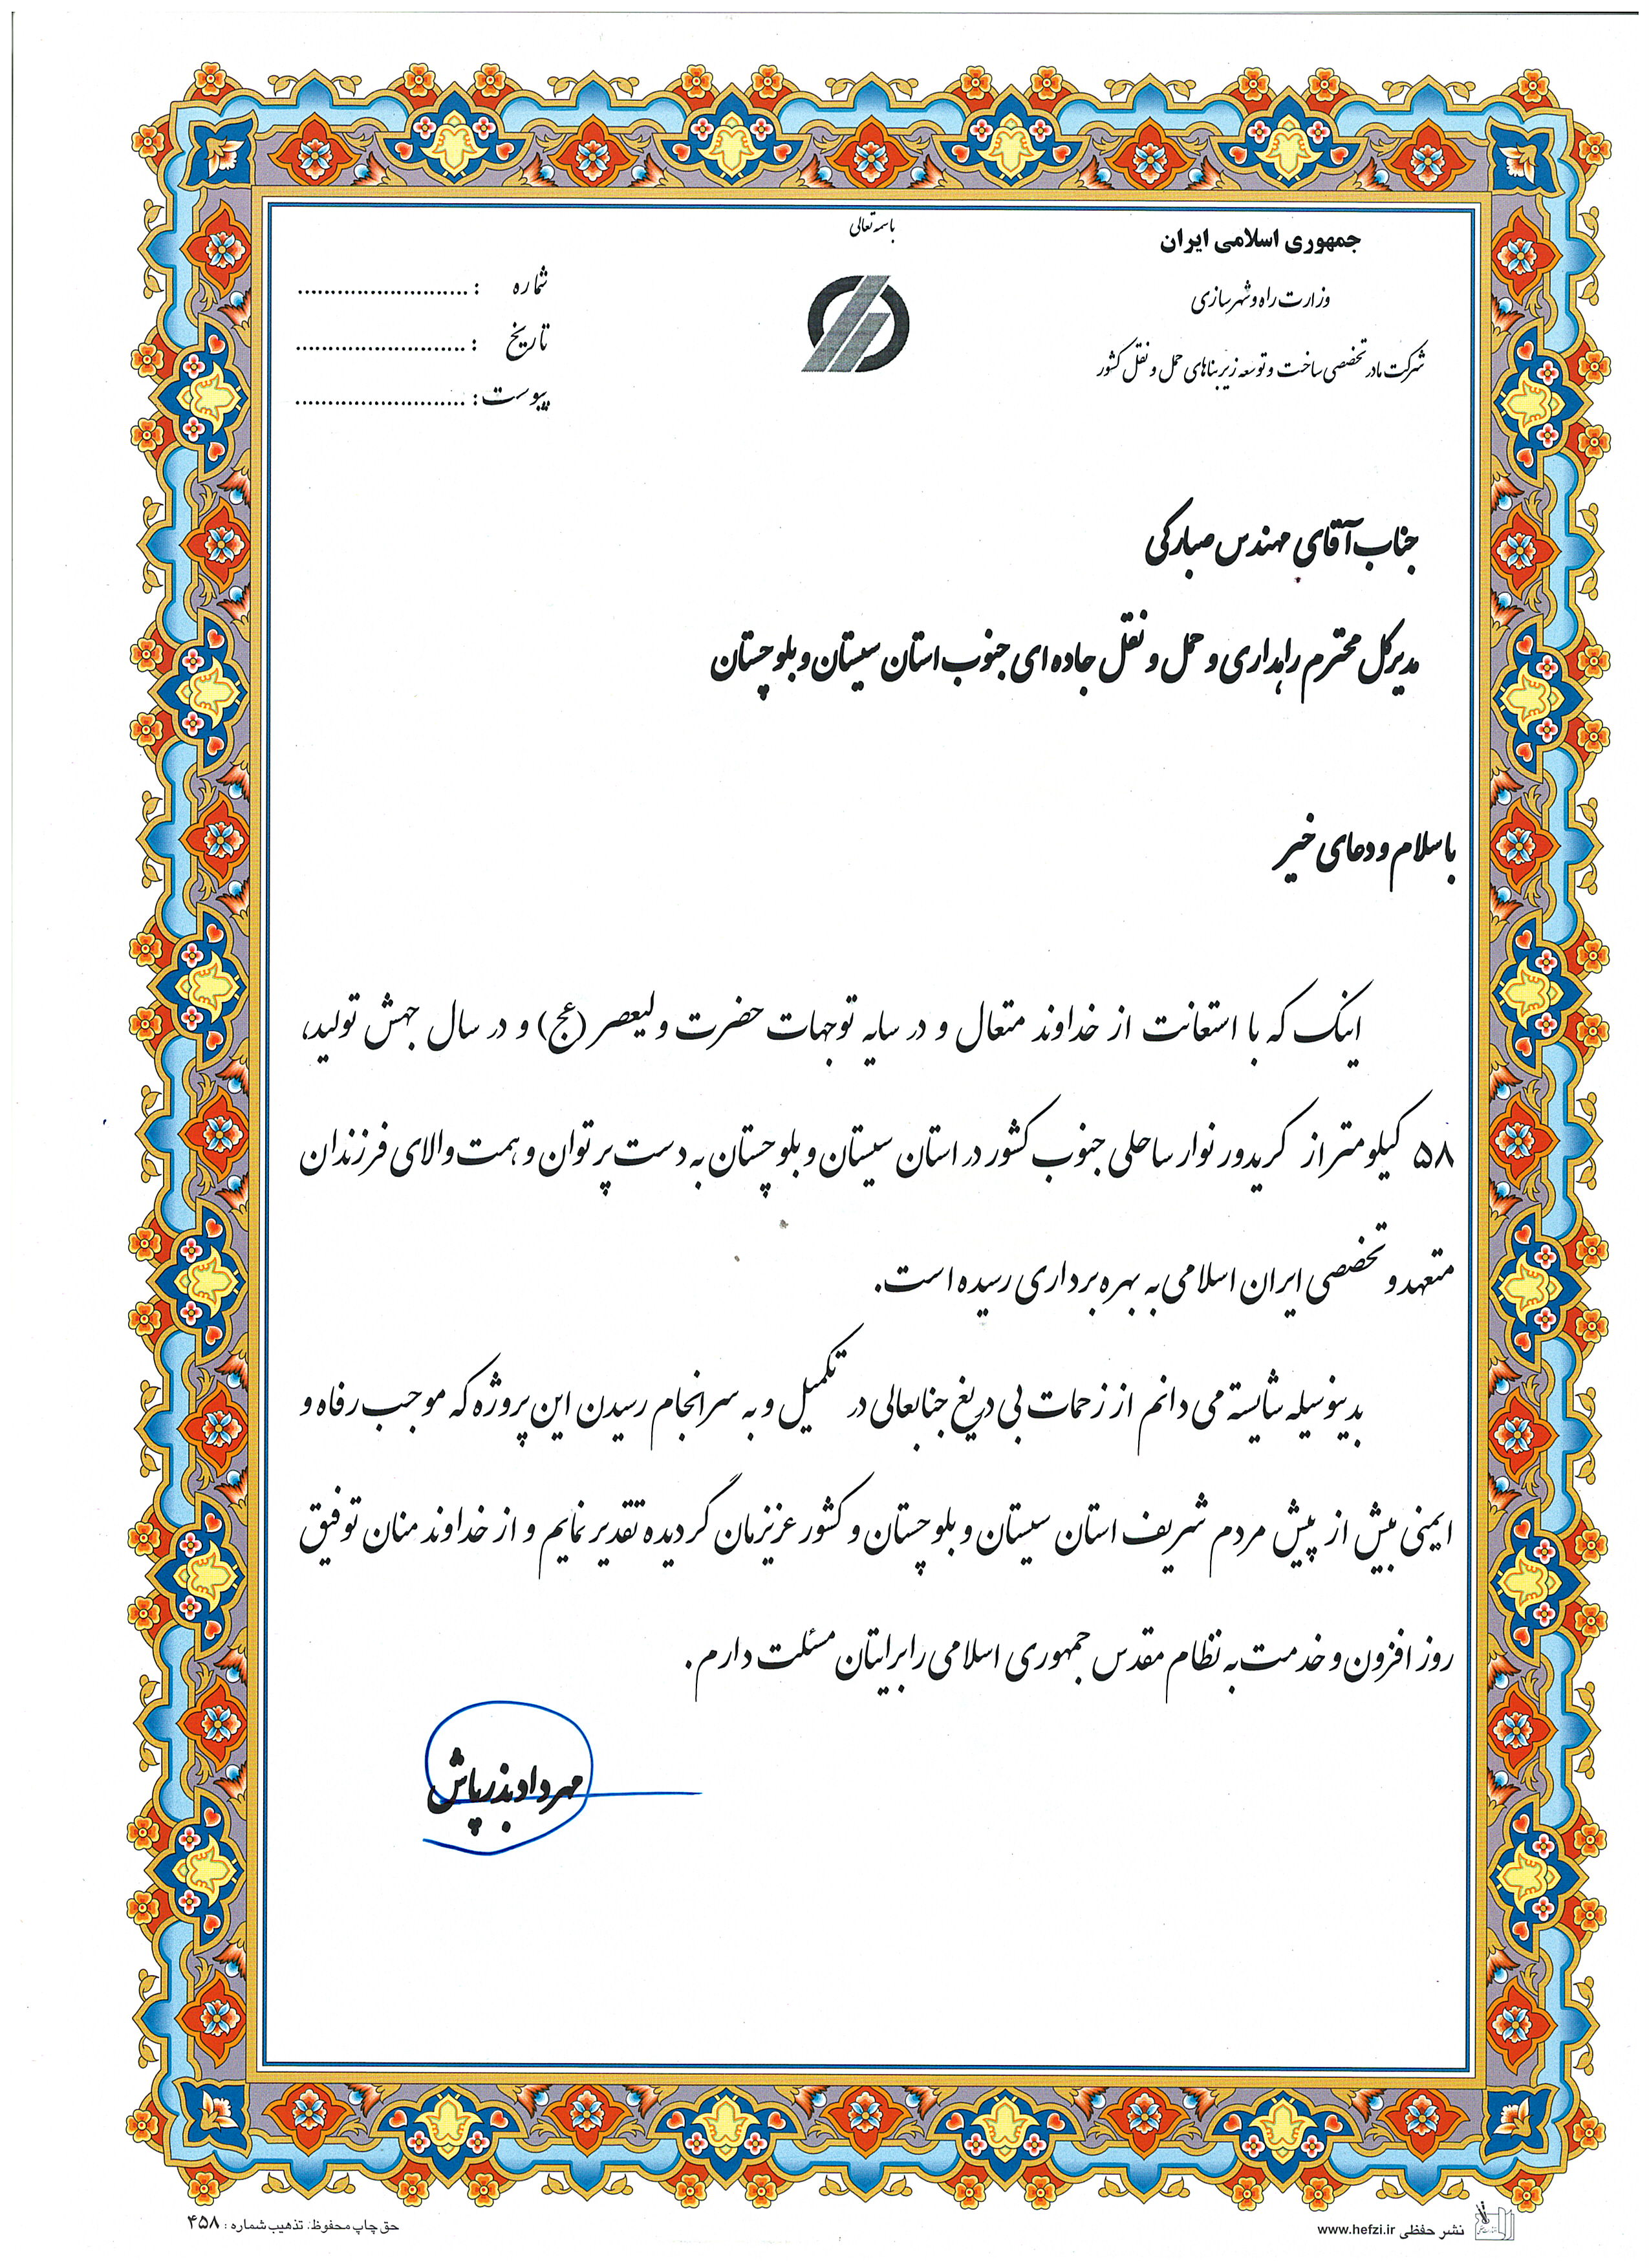 باسمه تعالی
جمهوری اسلامی ایران
وزارت راه و شهرسازی
شرکت مادر تخصصی ساخت و توسعه زیربناهای حمل و نقل کشور
شماره : ..........................
تاریخ : ..........................
پیوست: ..........................
جناب آقای مهندس صبارکی
مدیرکل محترم راهداری و حمل و نقل جاده ای جنوب استان سیستان و بلوچستان
با سلام و دعای خیر
اینک که با استعانت از خداوند متعال و در سایه توجهات حضرت ولیعصر (عج) و در سال جهش تولید،
۵۸ کیلومتر از کریدور نوار ساحلی جنوب کشور در استان سیستان و بلوچستان به دست پرتوان و همت والای فرزندان
متعهد و تخصصی ایران اسلامی به بهره برداری رسیده است.
بدینوسیله شایسته می دانم از زحمات بی دریغ جنابعالی در تکمیل و به سرانجام رسیدن این پروژه که موجب رفاه و
ایمنی بیش از پیش مردم شریف استان سیستان و بلوچستان و کشور عزیزمان گردیده تقدیر نمایم و از خداوند منان توفیق
روز افزون و خدمت به نظام مقدس جمهوری اسلامی را برایتان مسئلت دارم.
مهرداد بذرپاش
نشر حفظی www.hefzi.ir
حق چاپ محفوظ. تذهیب شماره : ۴۵۸